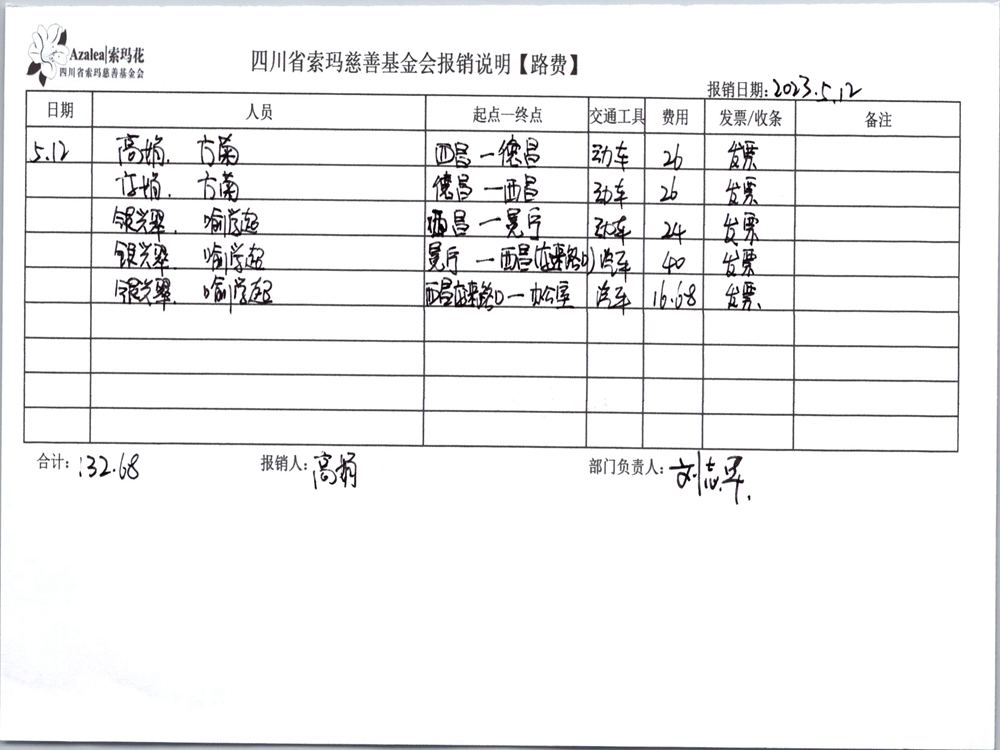 Azalea|索玛花
四川省索玛慈善基金会
四川省索玛慈善基金会报销说明【路费】
报销日期:2023.5.12
日期 人员 起点—终点 交通工具 费用 发票/收条 备注
5.12 高娟. 方菊 西昌—德昌 动车 26 发票
高娟. 方菊 德昌—西昌 动车 26 发票
喻学超 西昌—冕宁 动车 24 发票
喻学超 冕宁—西昌 汽车 40 发票
喻学超 西昌 —办公室 汽车 16.68 发票
合计:132.68 报销人:高娟 部门负责人:刘志军.